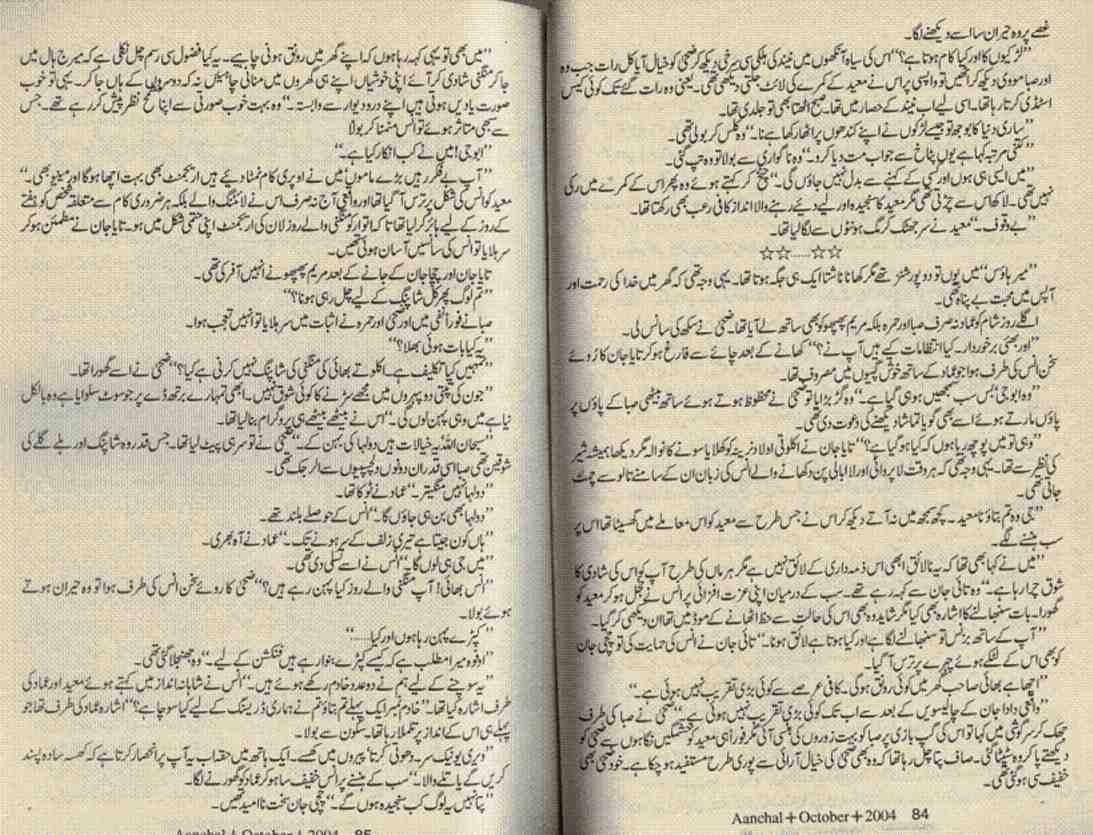 غصے پر وہ حیران سا اسے دیکھنے لگا۔
”لڑکیوں کا اور کیا کام ہوتا ہے؟“ اس کی سیاہ آنکھوں میں نیند کی ہلکی سی سرخی دیکھ کر ضحیٰ کو خیال آیا کل رات جب وہ
اور صبا مووی دیکھ کر اٹھیں تو واپسی پر اس نے معید کے کمرے کی لائٹ جلتی دیکھی تھی۔ یعنی وہ رات گئے تک کوئی کیس
اسٹڈی کرتا رہا تھا۔ اسی لیے اب نیند کے حصار میں تھا۔ صبح اٹھتا بھی تو جلدی تھا۔
”ساری دنیا کا بوجھ تو جیسے لڑکوں نے اپنے کندھوں پر اٹھا رکھا ہے نا۔“ وہ کلس کر بولی تھی۔
”کتنی مرتبہ کہا ہے یوں پٹاخ سے جواب مت دیا کرو۔“ وہ ناگواری سے بولا تو وہ تپ گئی۔
”میں ایسی ہی ہوں اور کسی کے کہنے سے بدل نہیں جاؤں گی۔“ چیخ کر کہتے ہوئے وہ پھر اس کے کمرے میں رکی
نہیں تھی۔ لاکھ اس سے چڑتی تھی مگر معید کا سنجیدہ اور لیے دیے رہنے والا انداز کافی رعب بھی رکھتا تھا۔
”بے وقوف۔“ معید نے سر جھٹک کر مگ ہونٹوں سے لگا لیا تھا۔
☆☆.....☆☆
”میر ہاؤس“ میں یوں تو دو پورشنز تھے مگر کھانا ناشتا ایک ہی جگہ ہوتا تھا۔ یہی وجہ تھی کہ گھر میں خدا کی رحمت اور
آپس میں محبت بے پناہ تھی۔
اگلے روز شام کو عماد نہ صرف صبا اور حمرہ بلکہ مریم پھپھو کو بھی ساتھ لے آیا تھا۔ ضحیٰ نے سکھ کی سانس لی۔
”اور بھئی برخوردار۔ کیا انتظامات کیے ہیں آپ نے؟“ کھانے کے بعد چائے سے فارغ ہو کر تایا جان کا روئے
سخن انس کی طرف ہوا جو عماد کے ساتھ خوش گپیوں میں مصروف تھا۔
”وہ ابو جی! بس سب سمجھیں ہو ہی گیا ہے۔“ وہ گڑبڑایا تو ضحیٰ نے محظوظ ہوتے ہوئے ساتھ بیٹھی صبا کے پاؤں پر
پاؤں مارتے ہوئے اسے بھی گویا تماشا دیکھنے کی دعوت دی تھی۔
”وہی تو میں پوچھ رہا ہوں کہ کیا ہو گیا ہے؟“ تایا جان نے اکلوتی اولاد نرینہ کو کھلایا سونے کا نوالہ مگر دیکھا ہمیشہ شیر
کی نظر سے تھا۔ یہی وجہ تھی کہ ہر وقت لا پروائی اور لاابالی پن دکھانے والے انس کی زبان ان کے سامنے تالو سے چمٹ
جاتی تھی۔
”جی وہ تم بتاؤ نا معید۔ کچھ سمجھ میں نہ آتے دیکھ کر اس نے جس طرح سے معید کو اس معاملے میں گھسیٹا تھا اس پر
سب ہنسنے لگے۔
”میں نے کہا بھی تھا کہ یہ نالائق ابھی اس ذمہ داری کے لائق نہیں ہے مگر ہر ماں کی طرح آپ کو اس کی شادی کا
شوق چرا رہا ہے۔“ وہ تائی جان سے کہہ رہے تھے۔ سب کے درمیان اپنی عزت افزائی پر انس نے خجل ہو کر معید کو
گھورا۔ بات سنبھالنے کا اشارہ بھی کیا مگر شاید وہ بھی اس کی حالت سے حظ اٹھانے کے موڈ میں تھا ان دیکھی کر گیا۔
”آپ کے ساتھ بزنس تو سنبھالنے لگا ہے اور کیا ہوتا ہے لائق ہونا۔“ تائی جان نے انس کی حمایت کی تو چچی جان
کو بھی اس کے لٹکے ہوئے چہرے پر ترس آ گیا۔
”اچھا ہے بھائی صاحب گھر میں کوئی رونق ہو گی۔ کافی عرصے سے کوئی بڑی تقریب نہیں ہوئی ہے۔“
”واقعی دادا جان کے چالیسویں کے بعد سے اب تک کوئی بڑی تقریب نہیں ہوئی ہے۔“ ضحیٰ نے صبا کی طرف
جھک کر سرگوشی میں کہا تو اس کی گپ بازی پر صبا کو بہت زوروں کی ہنسی آئی مگر فوراً ہی معید کو خشمگیں نگاہوں سے ضحیٰ کو
دیکھتے پا کر وہ سٹپٹا گئی۔ صاف پتا چل رہا تھا کہ وہ بھی ضحیٰ کی خیال آرائی سے پوری طرح مستفید ہو چکا ہے۔ خود ضحیٰ بھی
خفیف سی ہو گئی تھی۔
Aanchal+October+2004 84
”میں بھی تو یہی کہہ رہا ہوں کہ اپنے گھر میں رونق ہونی چاہیے۔ یہ کیا فضول سی رسم چل نکلی ہے کہ میرج ہال میں
جا کر منگنی شادی کر آئے اپنی خوشیاں اپنے ہی گھروں میں منانی چاہئیں نہ کہ دوسروں کے ہاں جا کر۔ یہی تو خوب
صورت یادیں ہوتی ہیں اپنے درودیوار سے وابستہ۔“ وہ بہت خوب صورتی سے اپنا نظر پیش کر رہے تھے۔ جس
سے سبھی متاثر ہوئے تو انس منمنا کر بولا
”ابو جی! میں نے کب انکار کیا ہے۔“
”آپ بے فکر رہیں بڑے ماموں میں نے اوپری کام نمٹا دئیے ہیں ارینجمنٹ بھی بہت اچھا ہوگا اور مینیو بھی۔“
معید کو انس کی شکل پر ترس آ گیا تھا اور واقعی آج نہ صرف اس نے لائٹنگ والے بلکہ ہر ضروری کام سے متعلقہ شخص کو ہفتے
کے روز کے لیے ہائر کر لیا تھا تاکہ اتوار کو منگنی والے روز لان کی ارینجمنٹ اپنی حتمی شکل میں ہو۔ تایا جان نے مطمئن ہو کر
سر ہلایا تو انس کی سانسیں آسان ہوئی تھیں۔
تایا جان اور چچا جان کے جانے کے بعد مریم پھپھو نے انہیں آفر کی تھی۔
”تم لوگ پھر کل شاپنگ کے لیے چل رہی ہو نا؟“
صبا نے فوراً نفی میں اور ضحیٰ اور حمرہ نے اثبات میں سر ہلایا تو انہیں تعجب ہوا۔
”یہ کیا بات ہوئی بھلا؟“
”تمہیں کیا تکلیف ہے۔ اکلوتے بھائی کی منگنی کی شاپنگ نہیں کرنی ہے کیا؟“ ضحیٰ نے اسے گھورا تھا۔
”جون کی تپتی دوپہروں میں مجھے سڑنے کا کوئی شوق نہیں۔ ابھی تمہارے برتھ ڈے پر جو سوٹ سلوایا ہے وہ بالکل
نیا ہے میں وہی پہن لوں گی۔“ اس نے بیٹھے بیٹھے ہی پروگرام بنا لیا تھا۔
”سبحان اللہ! یہ خیالات ہیں دولہا کی بہن کے۔“ ضحیٰ نے تو سر ہی پیٹ لیا تھا۔ جس قدر وہ شاپنگ اور ہلے گلے کی
شوقین تھی صبا اسی قدر ان دونوں دلچسپیوں سے الرجک تھی۔
”دولہا نہیں منگیتر۔“ عماد نے ٹوکا تھا۔
”دولہا بھی بن ہی جاؤں گا۔“ انس کے حوصلے بلند تھے۔
”ہاں کون جیتا ہے تیری زلف کے سر ہونے تک۔“ عماد نے آہ بھری۔
”میں جی ہی لوں گا۔“ انس نے اسے تسلی دی تھی۔
”انس بھائی! آپ منگنی والے روز کیا پہن رہے ہیں؟“ ضحیٰ کا روئے سخن انس کی طرف ہوا تو وہ حیران ہوتے
ہوئے بولا۔
”کپڑے پہن رہا ہوں اور کیا......“
”اوفوہ میرا مطلب ہے کہ کیسے کپڑے بنوا رہے ہیں فنکشن کے لیے۔“ وہ جھنجلا گئی تھی۔
”یہ سوچنے کے لیے ہم نے دو عدد خادم رکھے ہوئے ہیں۔“ انس نے شاہانہ انداز میں کہتے ہوئے معید اور عماد کی
طرف اشارہ کیا تھا۔ ”خادم نمبر ایک پہلے تم بتاؤ تم نے ہماری ڈریسنگ کے لیے کیا سوچا ہے؟“ اشارہ عماد کی طرف تھا جو
پہلے ہی اس کے انداز پر تلملا رہا تھا۔ سکون سے بولا۔
”ویری یونیک سر۔ دھوتی کرتا پیروں میں کھسے۔ ایک ہاتھ میں حقہ اب یہ آپ پر انحصار کرتا ہے کہ کھسہ سادہ پسند
کریں گے یا تلے والا۔“ سب کے ہنسنے پر انس خفیف سا ہو کر عماد کو گھورنے لگا۔
”پتا نہیں یہ لوگ کب سنجیدہ ہوں گے۔“ چچی جان سخت ناامید تھیں۔
Aanchal+October+2004 85